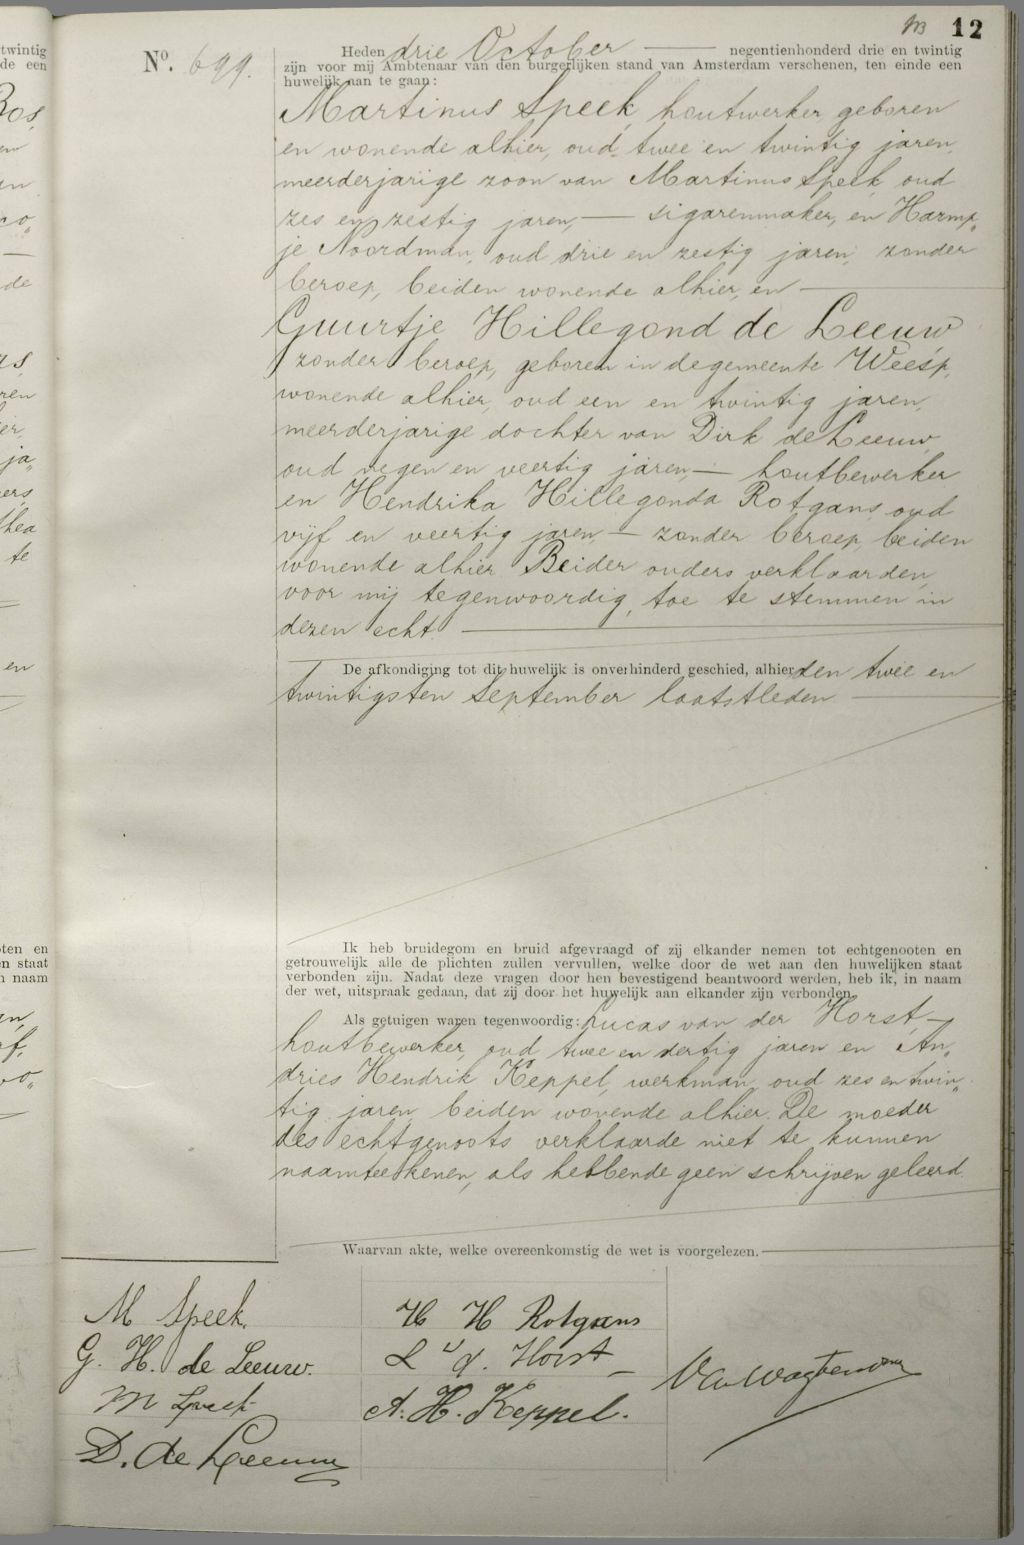 12
twintig
de een
Nº. 699.
Heden drie October negentienhonderd drie en twintig
zijn voor mij Ambtenaar van den burgerlijken stand van Amsterdam verschenen, ten einde een
huwelijk aan te gaan:
Martinus Speek, houtwerker, geboren
en wonende alhier, oud twee en twintig jaren,
meerderjarige zoon van Martinus Speek, oud
zes en zestig jaren, — sigarenmaker, en Harmp„
je Noordman, oud drie en zestig jaren, zonder
beroep, beiden wonende alhier, en —
Guurtje Hillegond de Leeuw,
zonder beroep, geboren in de gemeente Weesp,
wonende alhier, oud een en twintig jaren,
meerderjarige dochter van Dirk de Leeuw,
oud negen en veertig jaren, — houtbewerker
en Hendrika Hillegonda Rotgans, oud
vijf en veertig jaren, — zonder beroep, beiden
wonende alhier. Beider ouders verklaarden,
voor mij tegenwoordig, toe te stemmen in
dezen echt —
De afkondiging tot dit huwelijk is onverhinderd geschied, alhier den twee en
twintigsten September laatstleden —
Ik heb bruidegom en bruid afgevraagd of zij elkander nemen tot echtgenooten en
getrouwelijk alle de plichten zullen vervullen, welke door de wet aan den huwelijken staat
verbonden zijn. Nadat deze vragen door hen bevestigend beantwoord werden, heb ik, in naam
der wet, uitspraak gedaan, dat zij door het huwelijk aan elkander zijn verbonden.
Als getuigen waren tegenwoordig: Lucas van der Horst, —
houtbewerker, oud twee en dertig jaren en An„
dries Hendrik Keppel, werkman, oud zes en twin„
tig jaren, beiden wonende alhier. De moeder
des echtgenoots verklaarde niet te kunnen
naamteekenen, als hebbende geen schrijven geleerd.
Waarvan akte, welke overeenkomstig de wet is voorgelezen. —
M Speek.
G. H. de Leeuw.
M Speek
D. de Leeuw
H H Rotgans
L v d. Horst
A. H. Keppel.